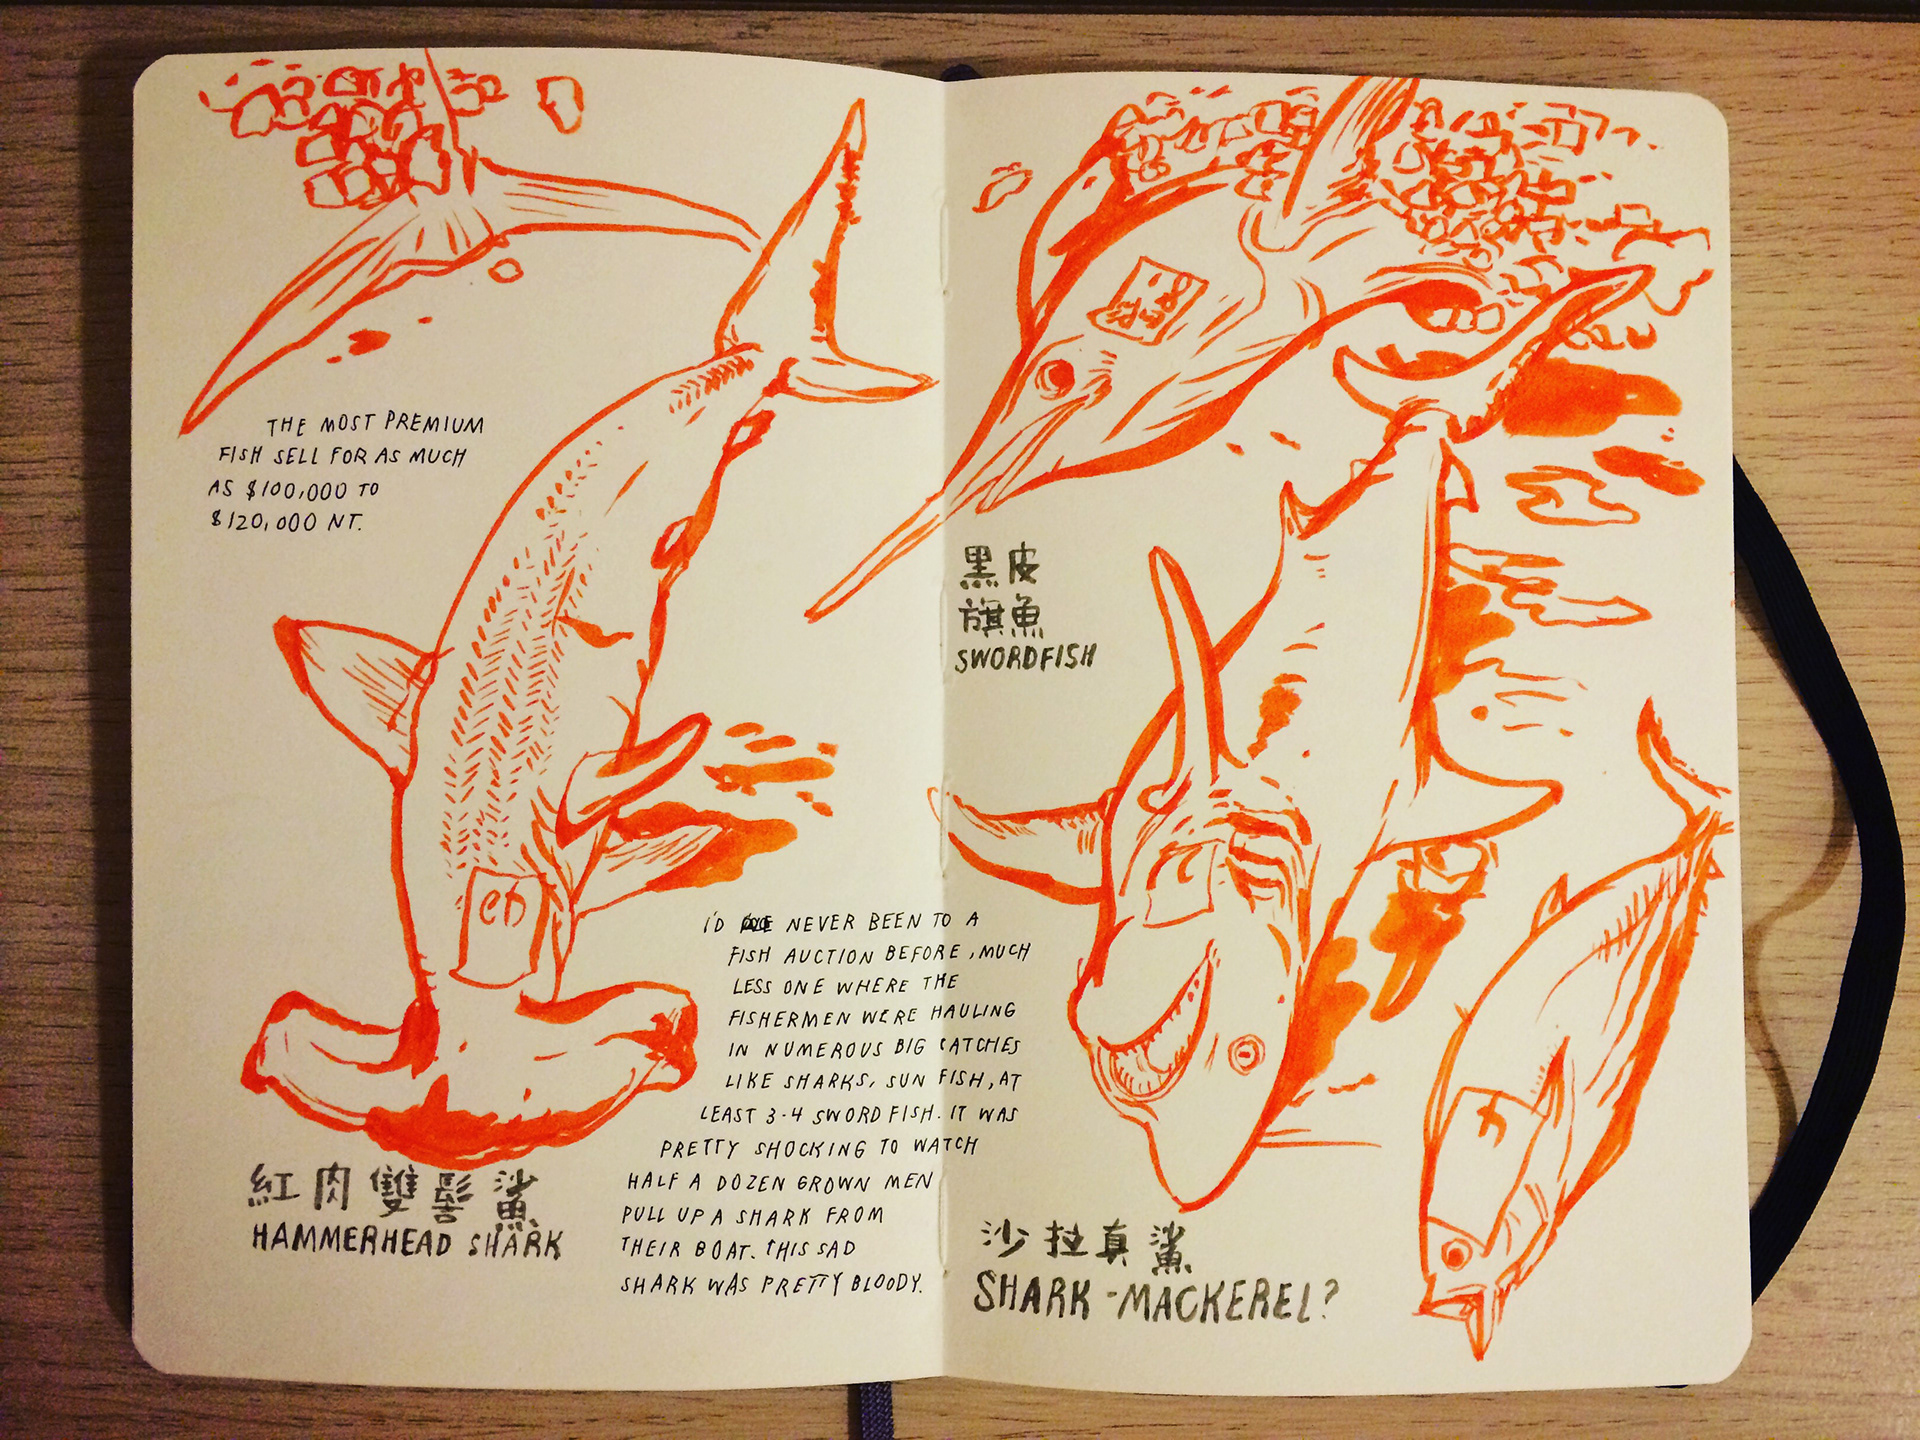 THE MOST PREMIUM
FISH SELL FOR AS MUCH
AS $100,000 TO
$120,000 NT.
紅肉雙髻鯊
HAMMERHEAD SHARK
I'D NEVER BEEN TO A
FISH AUCTION BEFORE, MUCH
LESS ONE WHERE THE
FISHERMEN WERE HAULING
IN NUMEROUS BIG CATCHES
LIKE SHARKS, SUN FISH, AT
LEAST 3-4 SWORDFISH. IT WAS
PRETTY SHOCKING TO WATCH
HALF A DOZEN GROWN MEN
PULL UP A SHARK FROM
THEIR BOAT. THIS SAD
SHARK WAS PRETTY BLOODY.
黑皮
旗魚
SWORDFISH
沙拉真鯊
SHARK-MACKEREL?